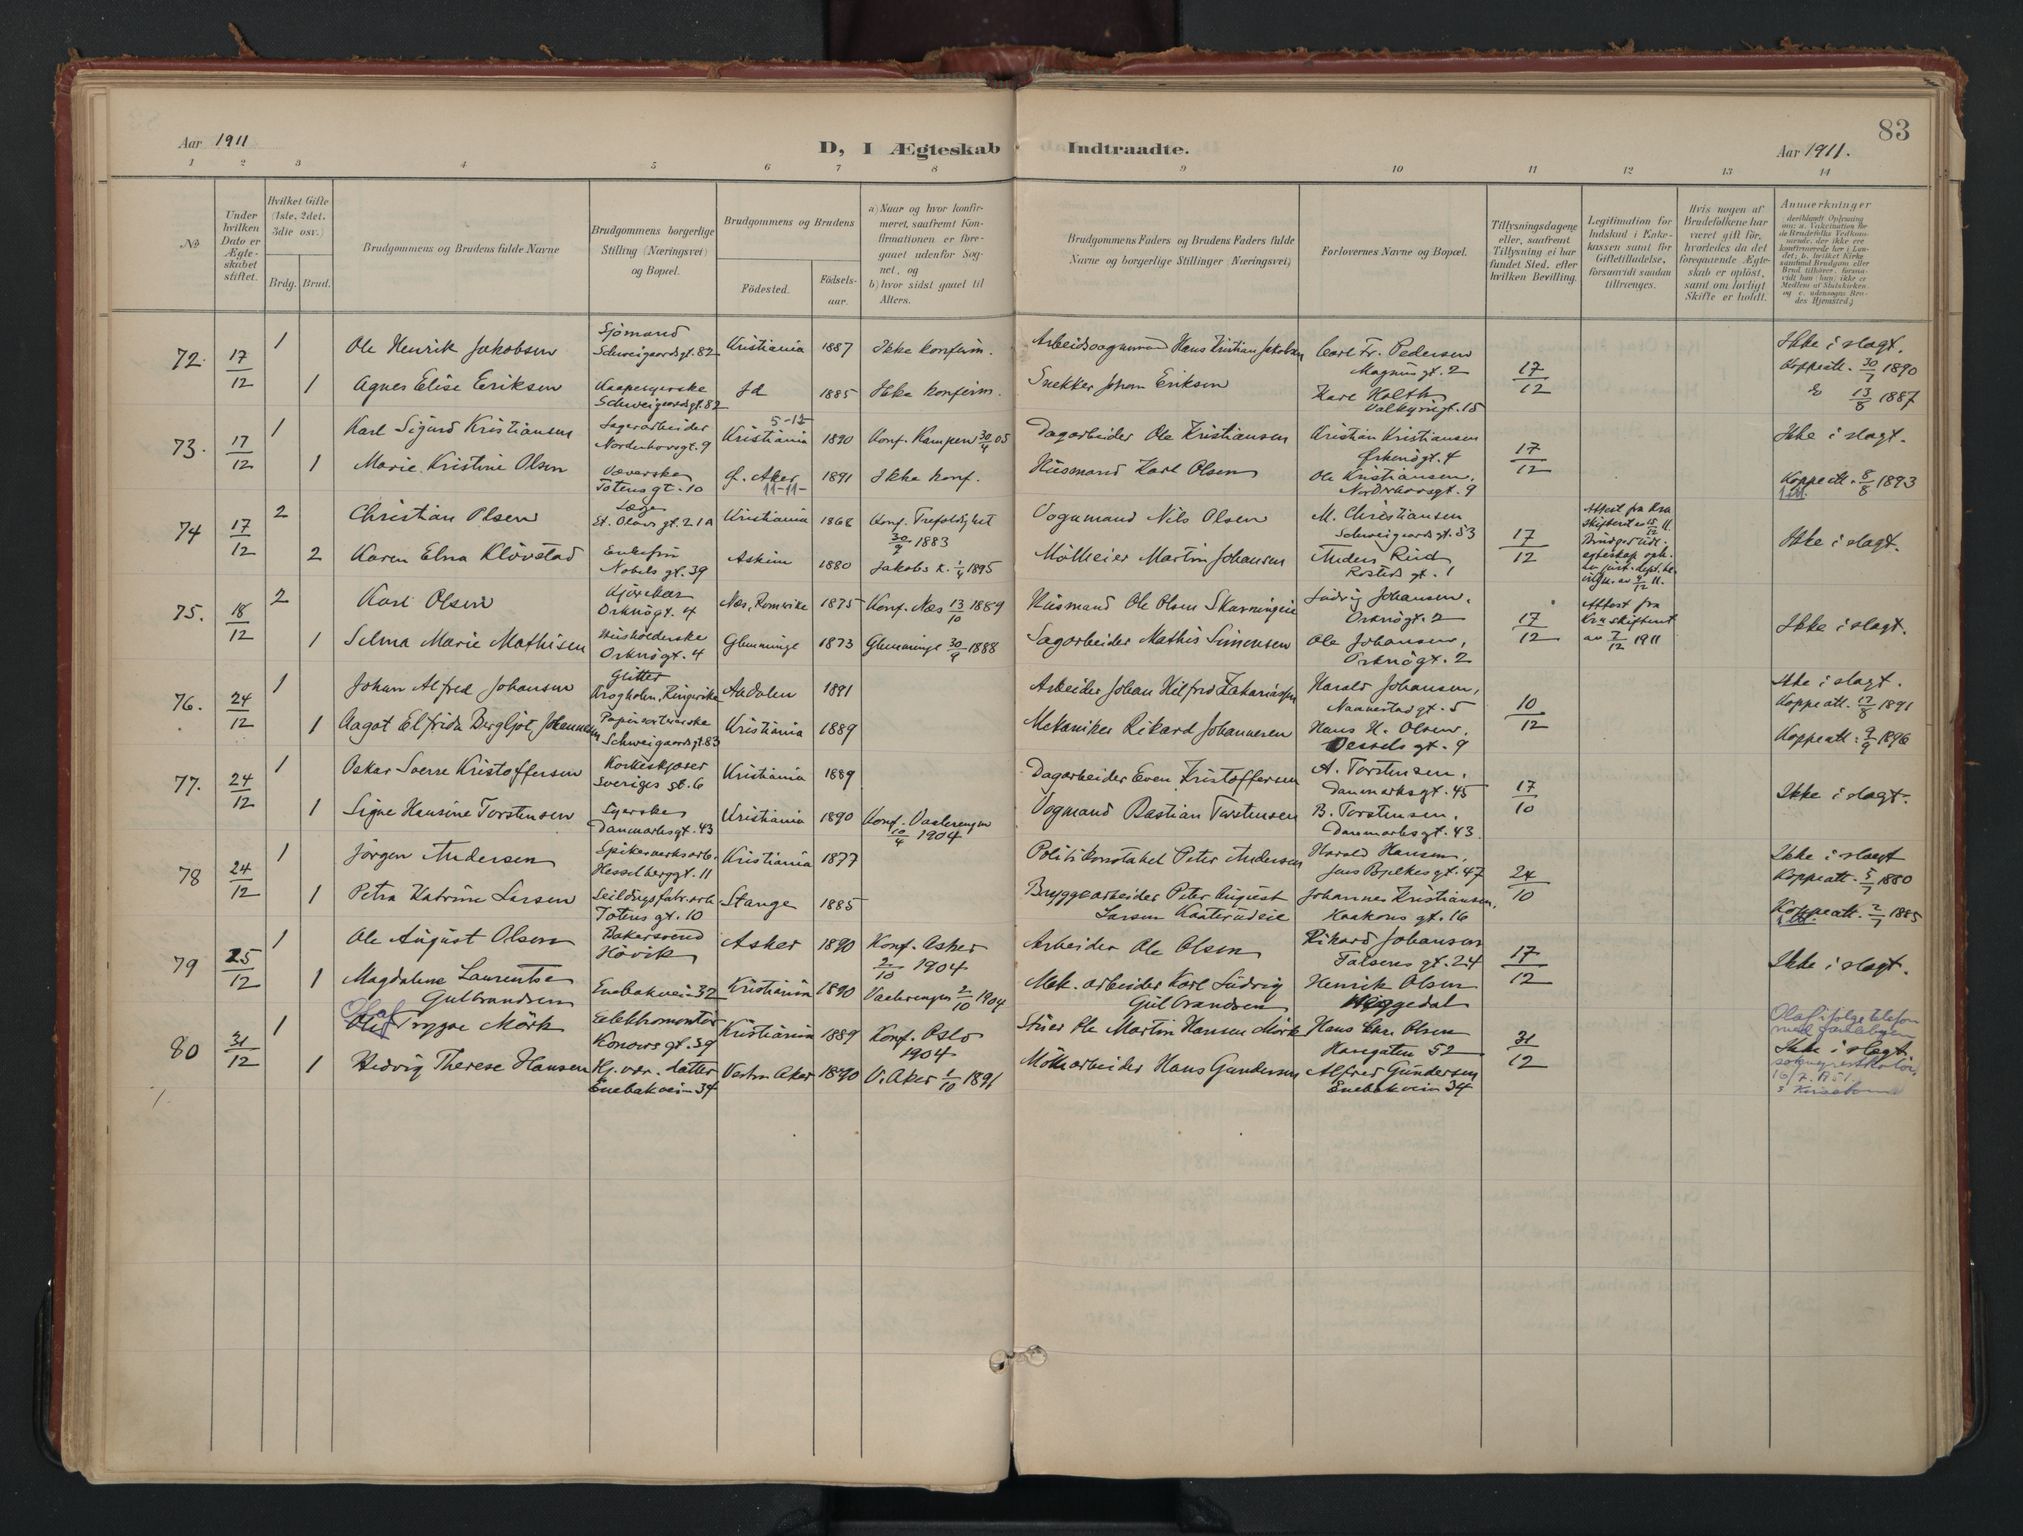 83
Aar 1911
D, I Ægteskab Indtraadte.
Aar 1911.
1 2 3 4 5 6 7 8 9 10 11 12 13 14
No
Under hvilken Dato er Ægteskabet stiftet.
Hvilket Gifte (1ste, 2det, 3die osv.)
Brdg. Brud.
Brudgommens og Brudens fulde Navne
Brudgommens borgerlige Stilling (Næringsvei) og Bopæl.
Brudgommens og Brudens
Fødested.
Fødselsaar.
a) Naar og hvor konfirmeret, saafremt Konfirmationen er foregaaet udenfor Sognet, og
b) hvor sidst gaaet til Alters.
Brudgommens Faders og Brudens Faders fulde Navne og borgerlige Stillinger (Næringsvei)
Forlovernes Navne og Bopæl.
Tillysningsdagene eller, saafremt Tillysning ei har fundet Sted, efter hvilken Bevilling.
Legitimation for Indskud i Enkekassen samt for Giftetilladelse, forsaavidt saadan tiltrænges.
Hvis nogen af Brudefolkene har været gift før, hvorledes da det foregaaende Ægteskab er opløst, samt om lovligt Skifte er holdt.
Anmerkninger
72. 17/12 1 Ole Henrik Jakobsen Sjømand Schweigaardsgt. 82 Kristiania 1887 Ikke konfirm. Hans Kristian Jakobsen Carl Fr. Pedersen Magnus gt. 2 17/12 Ikke i slagt. Koppeatt. 30/7 1890
1 Agnes Elise Eriksen Schweigaardsgt. 82 Id 1885 Ikke konfirm. Snekker Johan Eriksen Karl Holth Valkyrigt. 15 13/8 1887
73. 17/12 1 Karl Sigurd Kristiansen Lagerarbeider Nordenhovsgt. 9 5-12 Kristiania 1890 Konf. Kampen 30/4 05 Dagarbeider Ole Kristiansen Kristian Kristiansen Ørknögt. 4 17/12 Ikke i slagt.
1 Marie Kristine Olsen Væverske Totens gt. 10 Ø. Aker 11-11- 1891 Ikke konf. Husmand Karl Olsen Ole Kristiansen, Nordenhovsgt. 9 Koppeatt. 8/8 1893
74 17/12 2 Christian Olsen Læge St. Olavs gt. 21A Kristiania 1868 Konf. Trefoldighet 30/9 1883 Vognmand Nils Olsen M. Christiansen Schweigaards gt. 53 17/12 Attest fra Kra skifteret av 15/12 11. Ikke i slagt.
2 Karen Elna Kløvstad Enkefru Nobels gt. 39 Askim 1880 Jakobs k. 1/4 1895 Martin Johansen Anders Rud Rosteds gt. 1
75. 18/12 2 Karl Olsen Kjørekar Orknögt. 4 Næs, Romerike 1875 Konf. Næs 13/10 1889 Husmand Ole Olsen Skavningeie Ludvig Johansen, Orknögt. 2 17/12 Attest fra Kra skifteret av 7/12 1911 Ikke i slagt.
1 Selma Marie Mathisen Husholderske Orknögt. 4 Glemminge 1873 Glemminge 30/9 1888 Sagarbeider Mathis Simensen Ole Johansen, Orknögt. 2
76. 24/12 1 Johan Alfred Johansen Glitter Ringerike Aadalen 1891 Arbeider Johan Hilfred Zakariassen Harald Johansen, Nannestadgt. 5 10/12 Ikke i slagt. Koppeatt. 17/8 1891
1 Aagot Elfrida Bergljot Johannesen Papirsorterarske Schweigaardsgt. 83 Kristiania 1889 Mekaniker Rikard Johannesen Hans H. Olsen, Wessels gt. 9 Koppeatt. 9/9 1896
77. 24/12 1 Oskar Sverre Kristoffersen Korkeskjærer Sveriges gt. 6 Kristiania 1889 Dagarbeider Even Kristoffersen A. Torstensen, Danmarksgt. 45 17/10 Ikke i slagt.
1 Signe Hansine Torstensen Syerske Danmarksgt. 43 Kristiania 1890 Konf. Vaalerengen 10/4 1904 Vogmand Bastian Torstensen B. Torstensen, Danmarksgt. 43
78 24/12 1 Jørgen Andersen Spikerverksarb. Hesselberggt. 11 Kristiania 1877 Politikonstabel Peter Andersen Harald Hansen, Jens Bjelkesgt. 47 24/10 Ikke i slagt Koppeatt. 5/7 1880
1 Petra Katrine Larsen Seildugsfabr. arb. Totens gt. 10 Stange 1885 Bryggearbeider Peter August Larsen Johannes Kristiansen, Haakons gt. 16 Koppeatt. 2/7 1885
79 25/12 1 Ole August Olsen Bakersvend Høvik Asker 1890 Konf. Asker 2/10 1904 Arbeider Ole Olsen Rikard Johansen gt. 24 17/12 Ikke i slagt.
1 Magdalene Laurentse Gulbrandsen Enebakvein 32 Kristiania 1890 Vaalerengen 2/10 1904 Mek. arbeider Karl Ludvig Gulbrandsen Henrik Olsen Heggedal
80 31/12 1 Olaf Trygve Mørk Elektromontør Konows gt. 39 Kristiania 1889 Konf. Oslo 1904 Ole Martin Hansen Mørk Hans Chr. Olsen Havgaten 52 31/12 Olaf ifølge telefon Ikke i slagt.
1 Hedvig Therese Hansen Hj. vær. datter Enebakvein 34 Vestre Aker 1890 V. Aker 1/10 1891 Hans Gundersen Alfred Gundersen Enebakvein 34 16/7. 1951